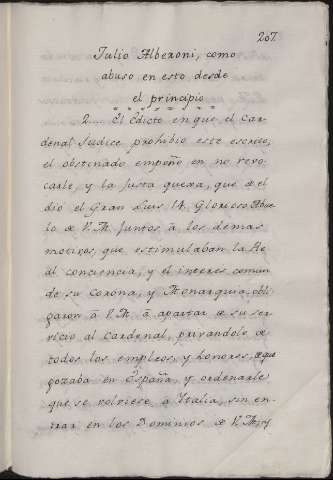 207.
Julio Alberoni, como
abuso en esto desde
el principio
2.... El Edicto en que el Car-
denal Judice prohibio este escrito,
el obstinado empeño en no revo-
carle, y la justa quexa, que de el
dió el Gran Luis 14. Glorioso Abue
lo de V.M. juntos à los demas
motivos, que estimulaban la Re
al conciencia, y el interes comun
de su corona, y Monarquia, obli
garon à V.M. à apartar de su ser
vicio al Cardenal, privandole de
todos los empleos, y honores, de que
gozaba en España, y ordenarle
que se volviese à Italia, sin en-
trar en los Dominios de V.M., y